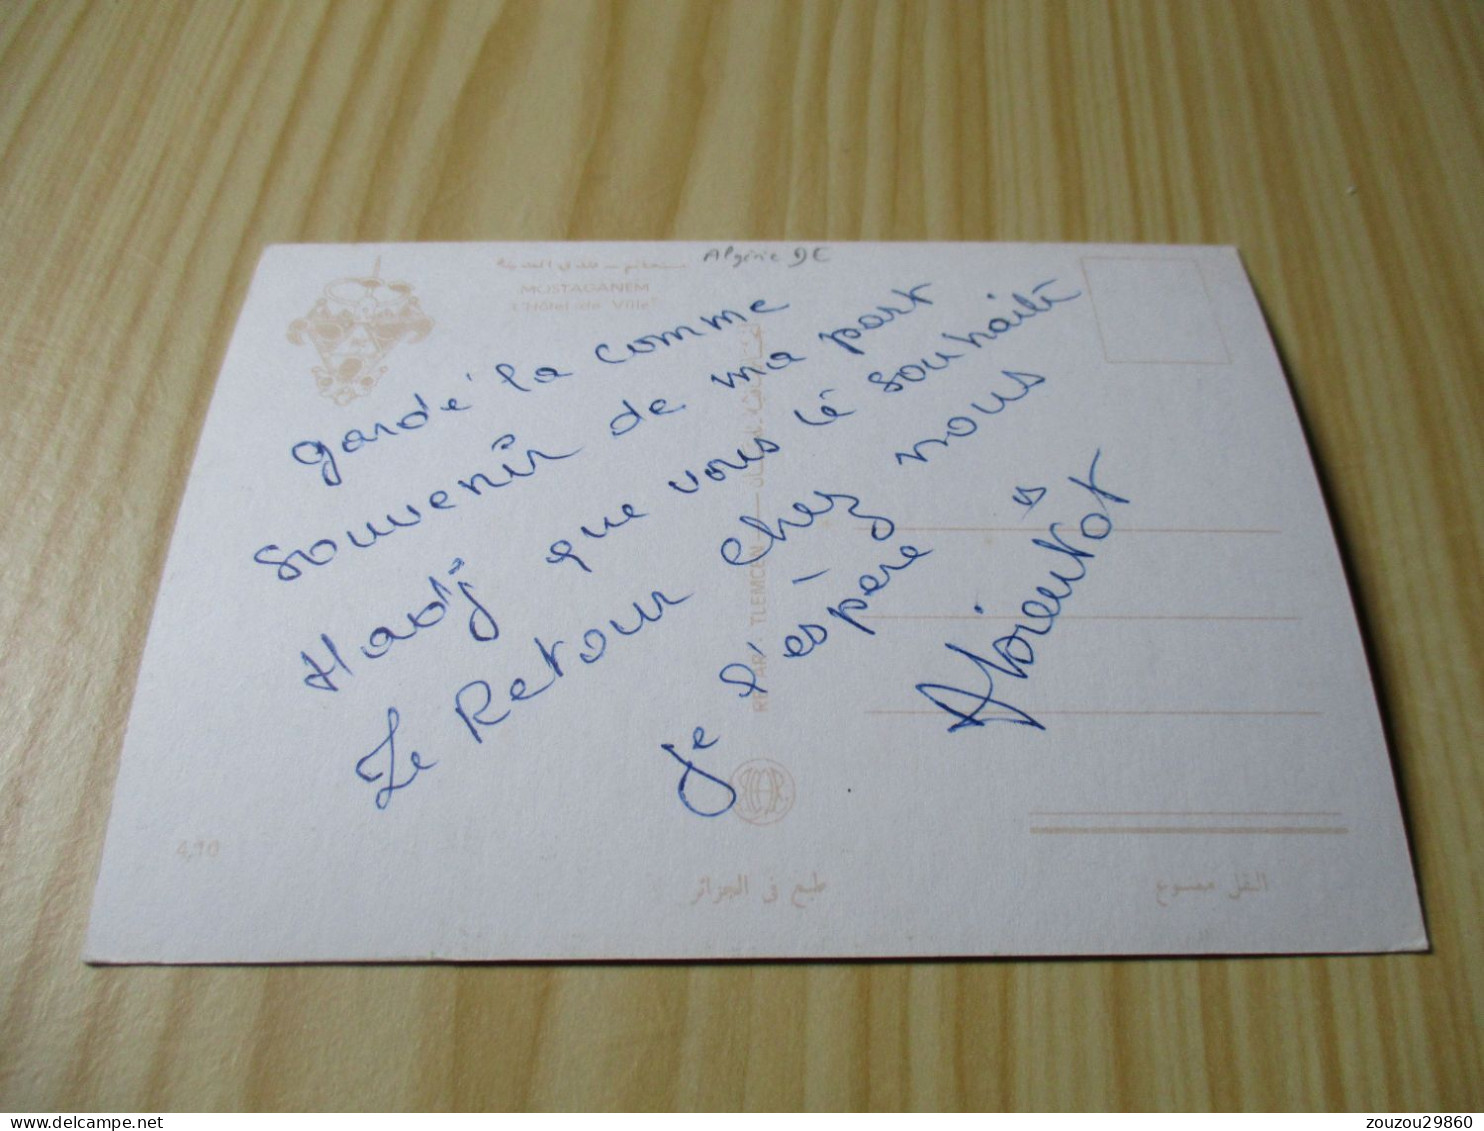 Algérie DE
مستغانم — فندق المدينة
MOSTAGANEM
L'Hôtel de Ville
gardé la comme
souvenir de ma part
Hadj que vous lé souhaité
Le Retour chez nous
je l'éspère
TLEMCEN
4,10
طبع في الجزائر
النقل ممنوع
zouzou29860